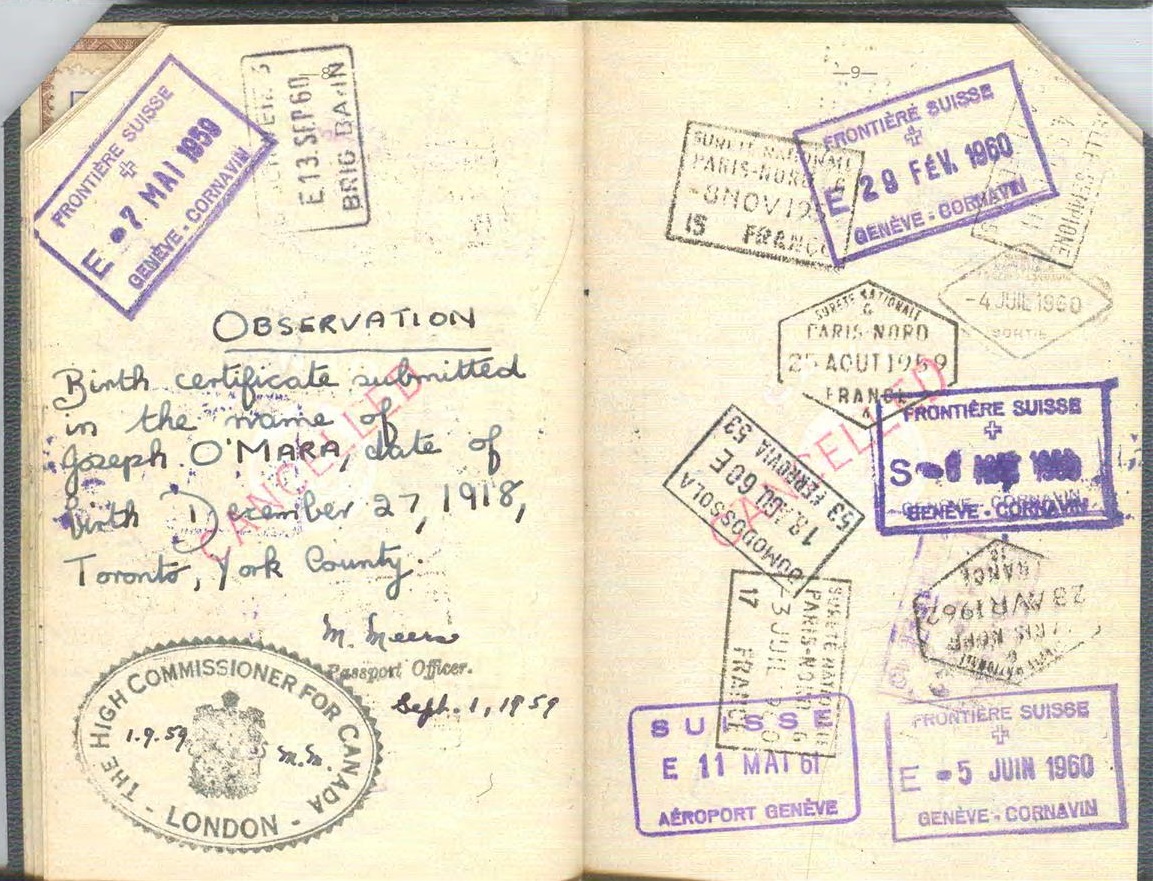 FRONTIÈRE SUISSE
E -7 MAI 1959
GENÈVE - CORNAVIN
8
E 13 SEP 60
BRIG
OBSERVATION
Birth certificate submitted
in the name of
Joseph O'MARA, date of
birth December 27, 1918,
Toronto, York County.
CANCELLED
M. Meers
Passport Officer.
Sept. 1, 1959
THE HIGH COMMISSIONER FOR CANADA
- LONDON -
1.9.59
M.M.
-9-
SURETÉ NATIONALE
PARIS-NORD
-8 NOV 195
15 FRANCE
FRONTIÈRE SUISSE
E 29 FÉV. 1960
GENÈVE - CORNAVIN
SEMPIONE
-4 JUIL 1960
SORTIE
SURETÉ NATIONALE
G
PARIS-NORD
25 AOUT 1959
FRANCE
CANCELLED
FRONTIÈRE SUISSE
S
GENÈVE - CORNAVIN
DOMODOSSOLA
60 E
53 FERROVIA 53
SURETÉ NATIONALE
PARIS-NORD G
-3 JUIL
17 FRANCE
SURETÉ NATIONALE
G
PARIS-NORD
28 AVR 1962
FRANCE
SUISSE
E 11 MAI 61
AÉROPORT GENÈVE
FRONTIÈRE SUISSE
E -5 JUIN 1960
GENÈVE - CORNAVIN